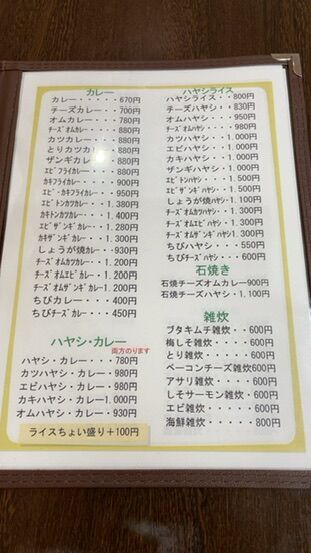 カレー
カレー・・・・・670円
チーズカレー・・・700円
オムカレー・・・・780円
チーズオムカレー・・・880円
カツカレー・・・・880円
とりカツカレー・・880円
ザンギカレー・・・880円
エビフライカレー・・・880円
カキフライカレー・・・900円
エビ・カキフライカレー・・950円
エビトンカツカレー・・1.380円
カキトンカツカレー・・1.400円
エビザンギカレー・・1.280円
カキザンギカレー・・1.300円
しょうが焼カレー・・930円
チーズオムカツカレー・・1.200円
チーズオムエビカレー・・1.200円
チーズオムザンギカレー・1.200円
ちびカレー・・・・400円
ちびチーズカレー・・450円
ハヤシ・カレー
両方のります
ハヤシ・カレー・・・780円
カツハヤシ・カレー・・980円
エビハヤシ・カレー・・980円
カキハヤシ・カレー・1.000円
オムハヤシ・カレー・・930円
ライスちょい盛り＋100円
ハヤシライス
ハヤシライス・・・800円
チーズハヤシ・・・830円
オムハヤシ・・・・950円
チーズオムハヤシ・・・980円
カツハヤシ・・・1.000円
エビハヤシ・・・1.000円
カキハヤシ・・・1.000円
ザンギハヤシ・・1.000円
エビトンハヤシ・・・1.500円
エビザンギハヤシ・・1.500円
しょうが焼ハヤシ・1.100円
チーズオムカツハヤシ・・1.300円
チーズオムエビハヤシ・・1.300円
チーズオムザンギハヤシ・1.300円
ちびハヤシ・・・・550円
ちびチーズハヤシ・・600円
石焼き
石焼チーズオムカレー900円
石焼チーズハヤシ・1.100円
雑炊
ブタキムチ雑炊・・・600円
梅しそ雑炊・・・・600円
とり雑炊・・・・・600円
ベーコンチーズ雑炊・600円
アサリ雑炊・・・・600円
しそサーモン雑炊・・600円
エビ雑炊・・・・・600円
海鮮雑炊・・・・・800円